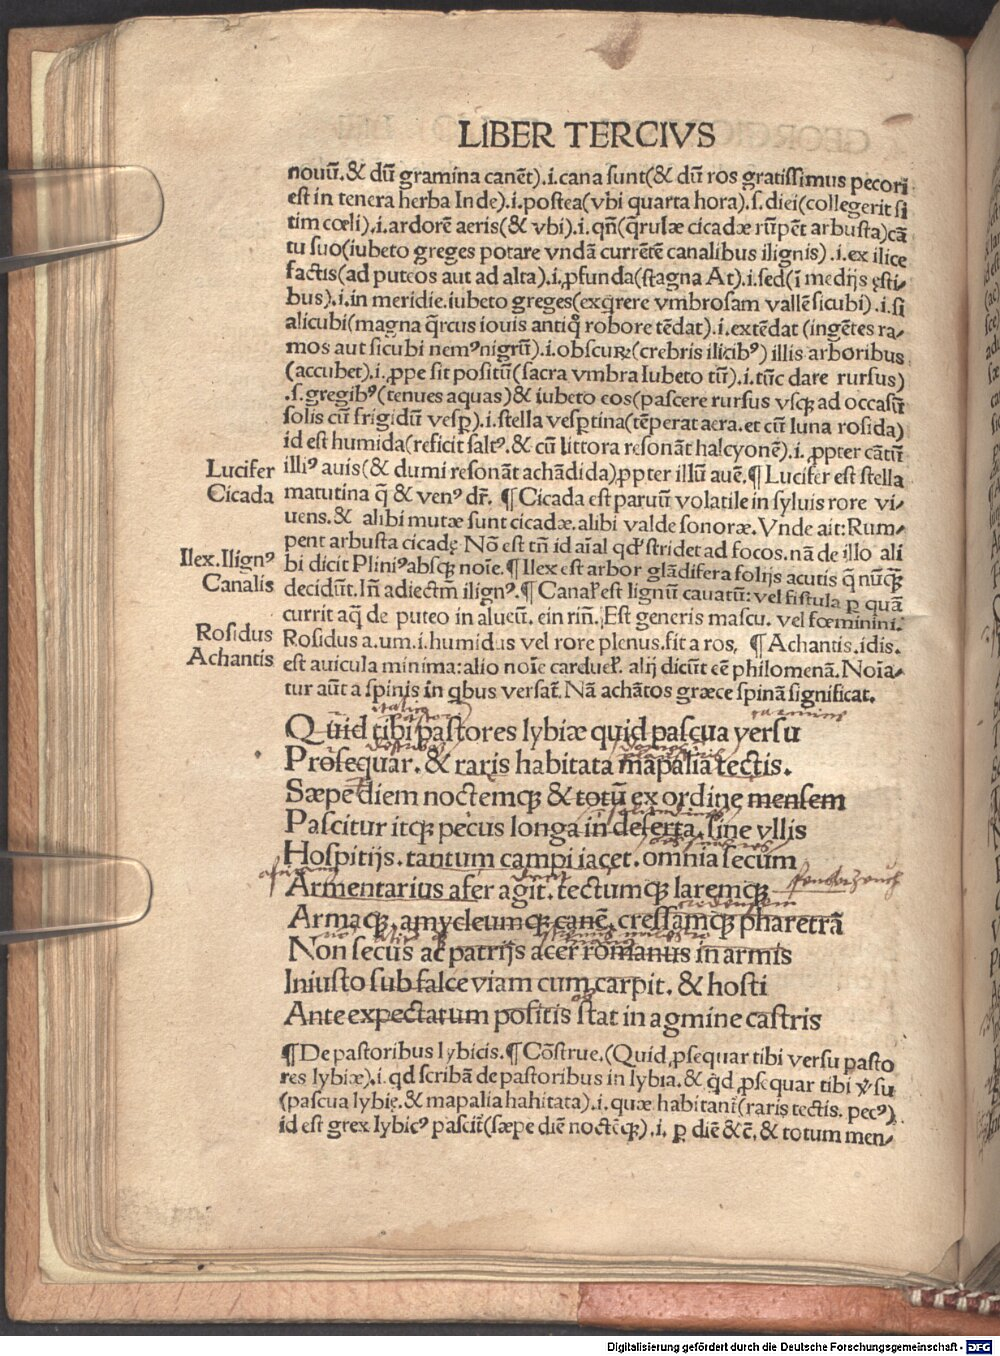 LIBER TERCIVS
nouū. & dū gramina canēt). i. cana sunt(& dū ros gratissimus pecori
est in tenera herba Inde). i. postea(vbi quarta hora). s. diei(collegerit si
tim cœli). i. ardorē aeris(& vbi). i. qn̄(q̄rulæ cicadæ rūpēt arbusta)cā
tu suo(iubeto greges potare vndā currētē canalibus ilignis). i. ex ilice
factis(ad puteos aut ad alta). i. ꝓfunda(stagna At). i. sed(ī medijs ęsti-
bus). i. in meridie. iubeto greges(exq̄rere vmbrosam vallē sicubi). i. si
alicubi(magna q̄rcus iouis antiq̊ robore tēdat). i. extēdat (ingētes ra-
mos aut sicubi nemꝰ nigrū). i. obscuꝝ(crebris ilicibꝰ) illis arboribus
(accubet). i. ꝓpe sit positū(sacra vmbra Iubeto tū). i. tūc dare rursus)
. s. gregibꝰ(tenues aquas)& iubeto eos(pascere rursus vsqꝫ ad occasū
solis cū frigidū vesꝑ). i. stella vesꝑtina(tēperat aera. et cū luna rosida)
id est humida(reficit saltꝰ. & cū littora resonāt halcyonē). i. ꝓpter cātū
Lucifer illiꝰ auis(& dumi resonāt achādida)ꝓpter illū auē. ¶ Lucifer est stella
Cicada matutina q̄ & venꝰ dr̄. ¶ Cicada est paruū volatile in syluis rore vi-
uens. & alibi mutæ sunt cicadæ. alibi valde sonoræ. Vnde ait: Rum-
pent arbusta cicadę Nō est tn̄ id aīal qd' stridet ad focos. nā de illo ali
Ilex. Ilignꝰ bi dicit Pliniꝰ absqꝫ noīe. ¶ Ilex est arbor glādifera folijs acutis q̄ nūq̄ꝫ
Canalis decidūt. In̄ adiectm̄ ilignꝰ. ¶ Canal' est lignū cauatū: vel fistula ꝑ quā
currit aq̄ de puteo in alueū. ein rin̄. Est generis mascu. vel fœminini.
Rosidus Rosidus a. um. i. humidus vel rore plenus. fit a ros. ¶ Achantis. idis.
Achantis est auicula minima: alio noīe carduel'. alij dicūt eē philomenā. Noīa-
tur aūt a spinis in qbus versat̄. Nā achātos græce spinā significat.
Quid tibi pastores lybiæ quid pascua versu
Prosequar. & raris habitata mapalia tectis.
Sæpe diem noctemqꝫ & totū ex ordine mensem
Pascitur itqꝫ pecus longa in deserta. sine vllis
Hospitijs. tantum campi iacet. omnia secum
Armentarius afer agit. tectumqꝫ laremqꝫ
Armaqꝫ. amycleumqꝫ canē. cressamqꝫ pharetrā
Non secus ac patrijs acer romanus in armis
Iniusto sub falce viam cum carpit. & hosti
Ante expectatum positis stat in agmine castris
¶ De pastoribus lybicis. ¶ Cōstrue. (Quid ꝓsequar tibi versu pasto
res lybiæ). i. qd scribā de pastoribus in lybia. & q̄d ꝓsequar tibi v̓su
(pascua lybię. & mapalia hahitata). i. quæ habitant̄(raris tectis. pecꝰ)
id est grex lybicꝰ pascit̄(sæpe diē noctēqꝫ). i. ꝑ diē & c̄. & totum men-